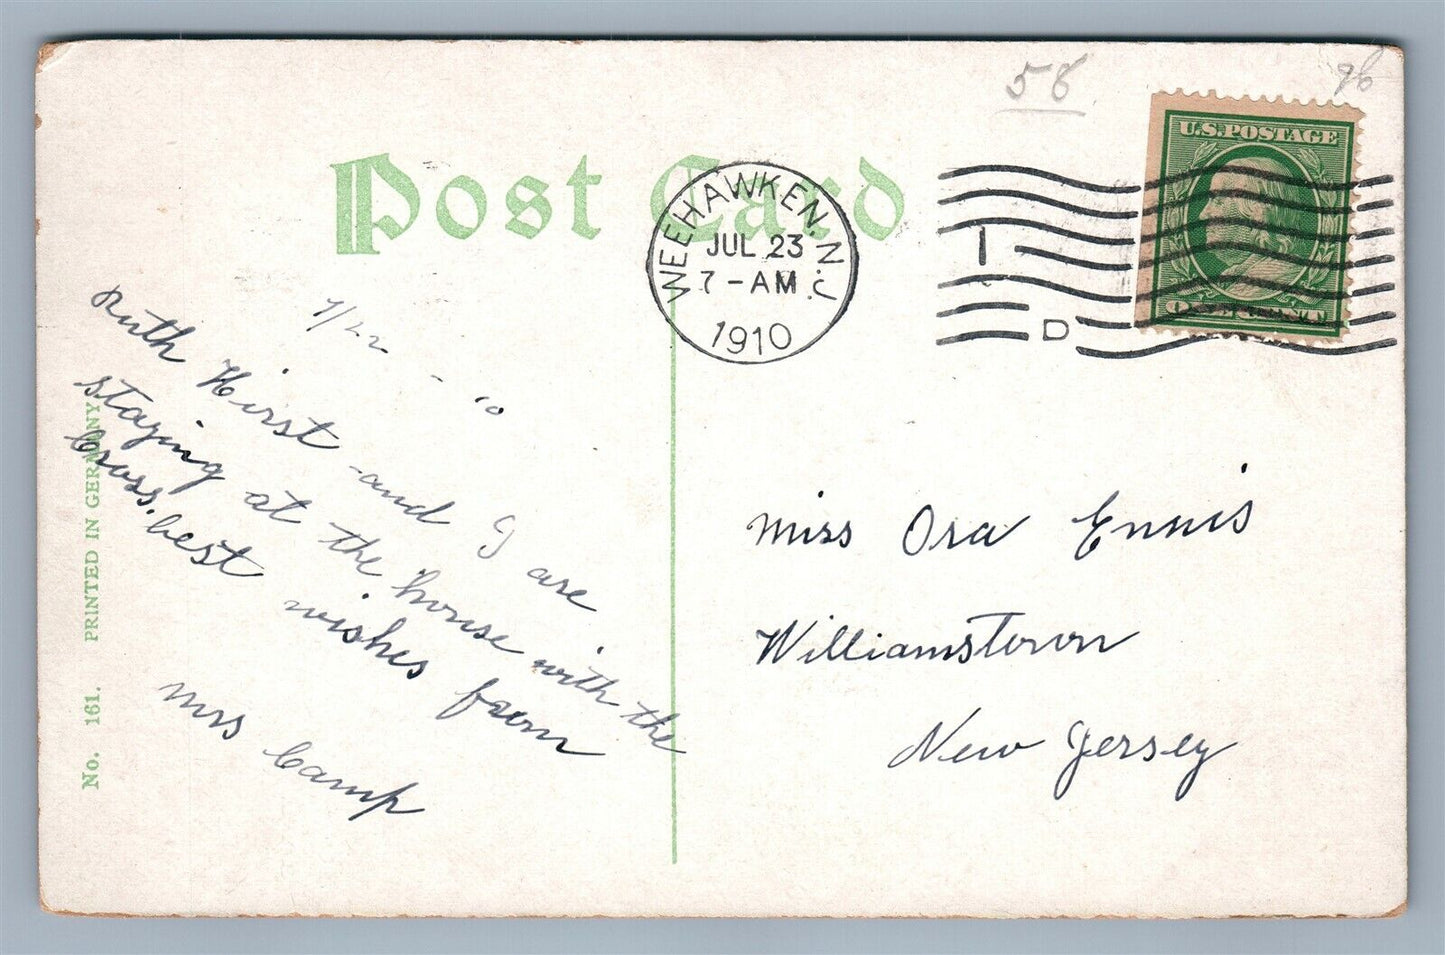 58
96
U.S. POSTAGE
ONE CENT
Post Card
WEEHAWKEN, N.J.
JUL 23
7-AM
1910
1
D
7/22 - 10
Ruth Hirst and I are
staying at the house with the
Cross. best wishes from
Mrs Camp
Miss Ora Ennis
Williamstown
New Jersey
No. 161. PRINTED IN GERMANY